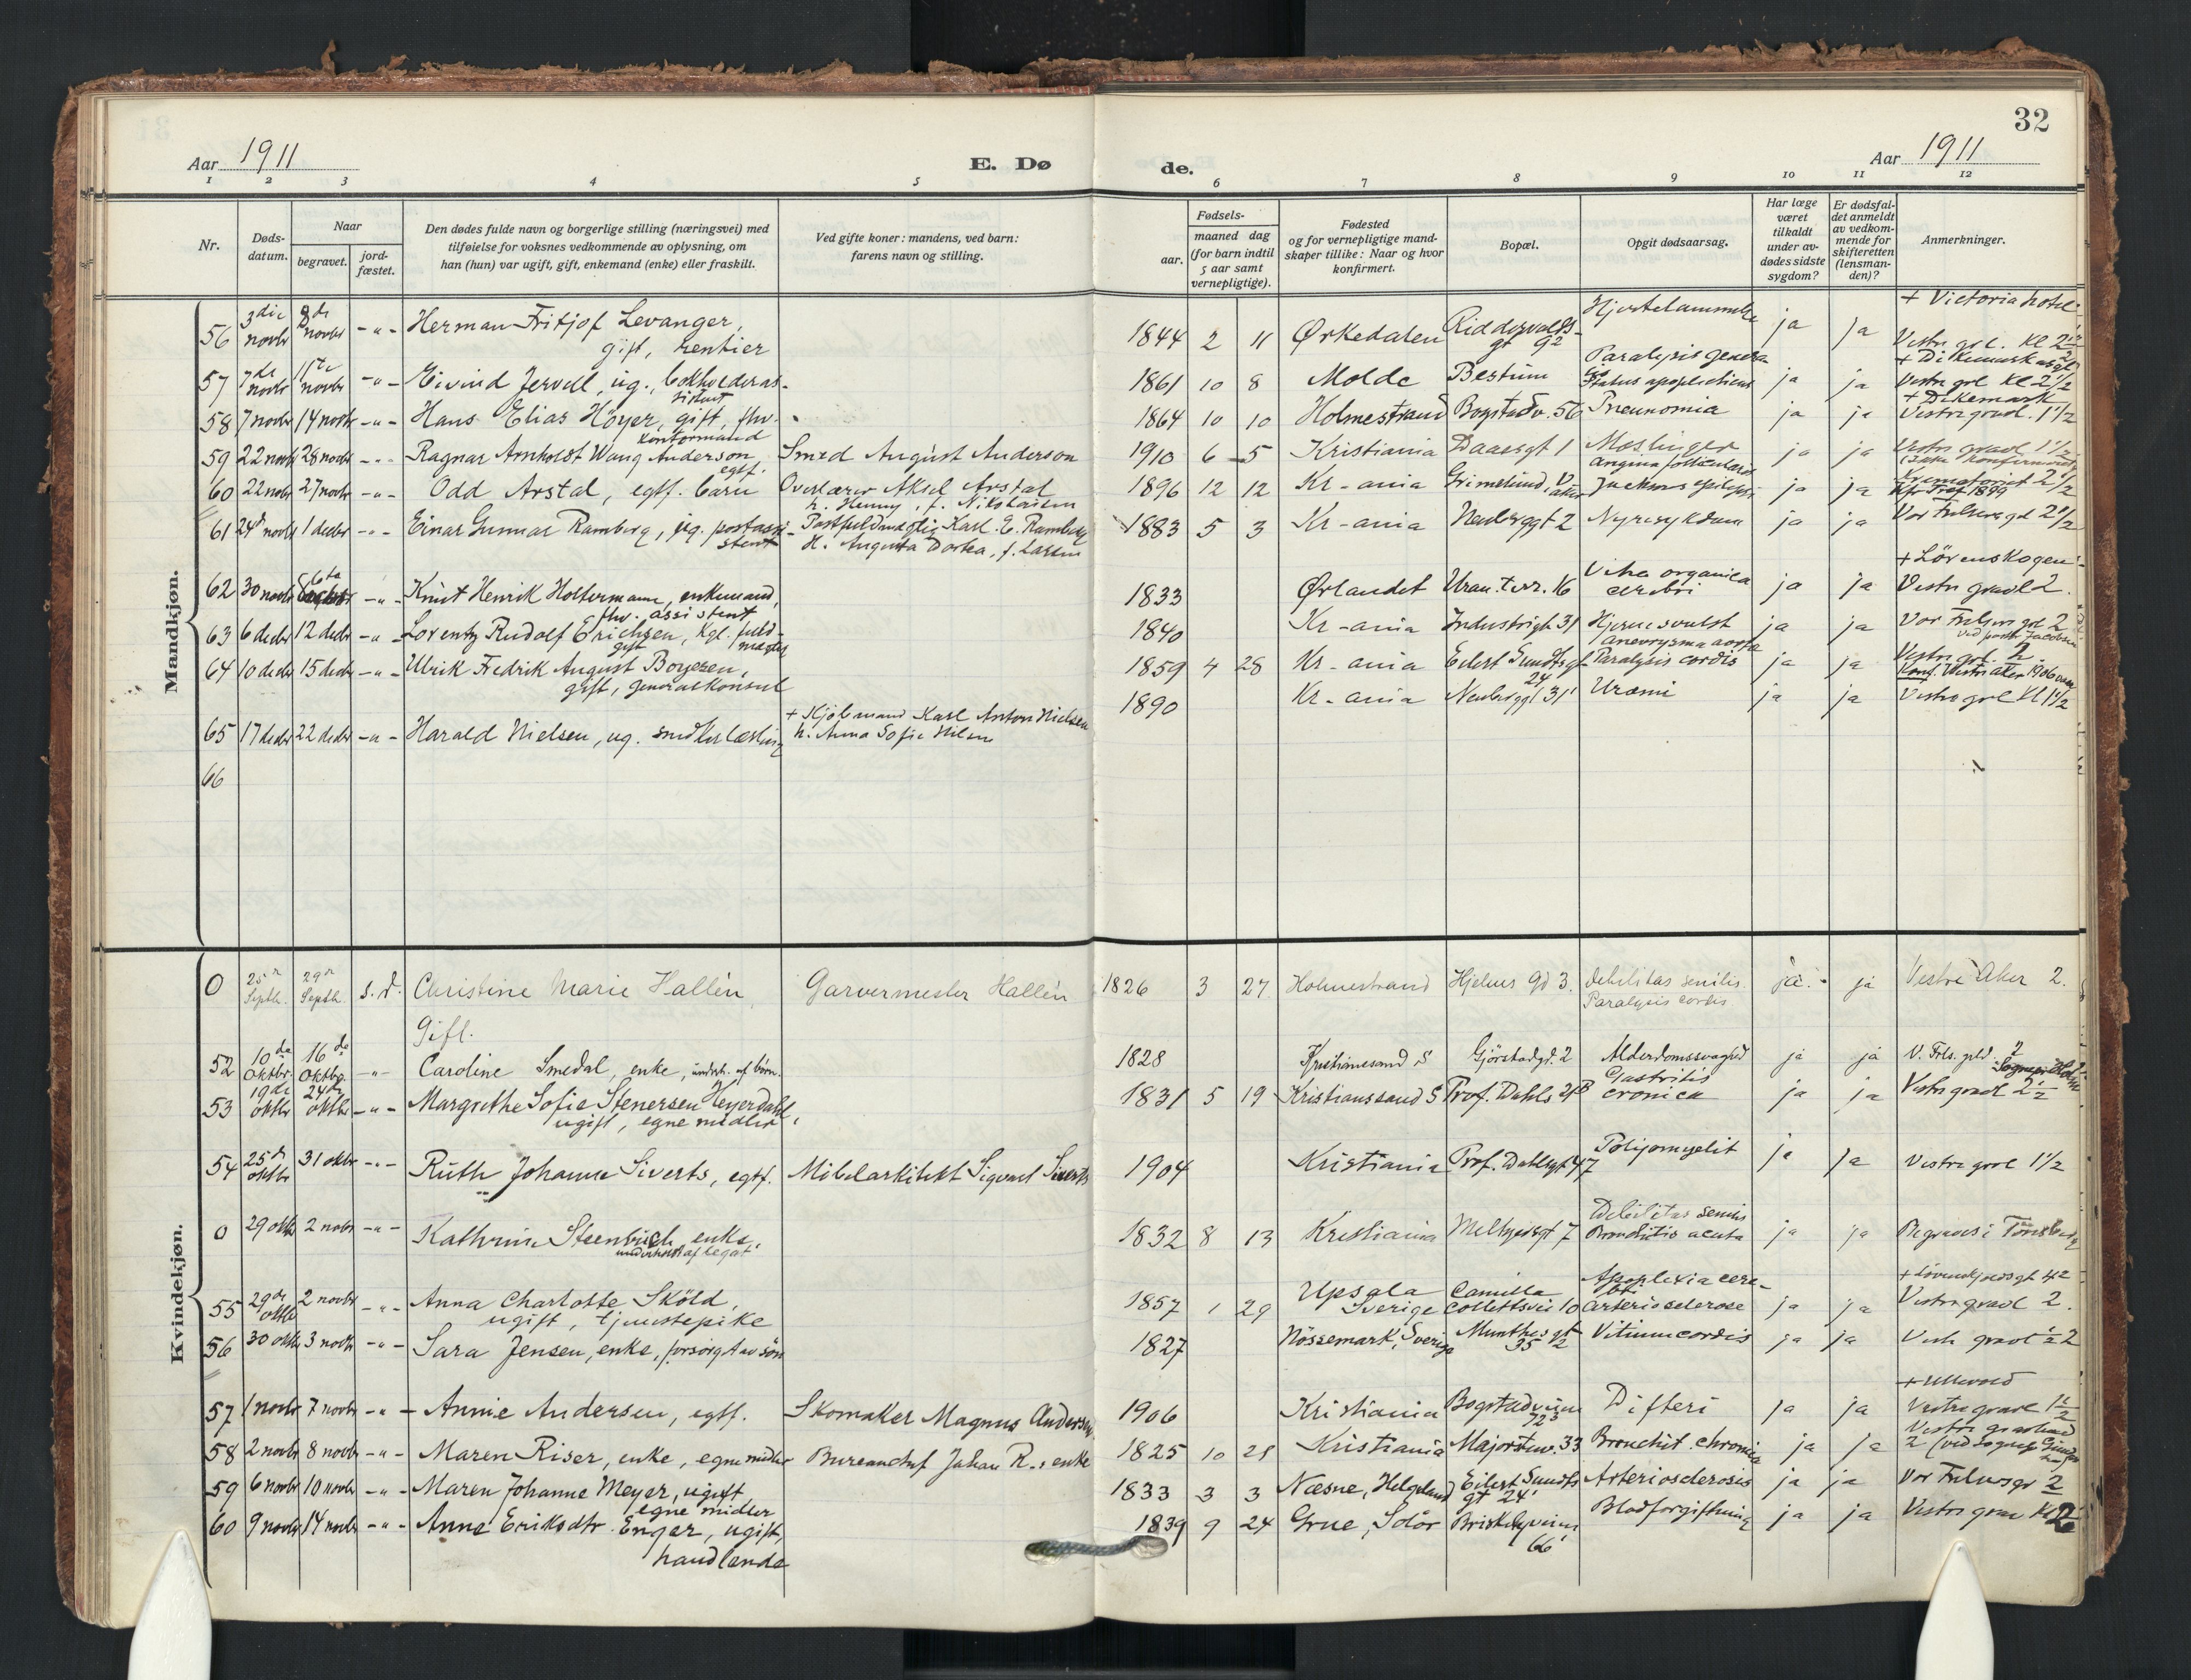 32
Aar 1911
E. Dø
de.
Aar 1911
1 2 3 4 5 6 7 8 9 10 11 12
Nr.
Døds-
datum.
Naar
begravet.
jord-
fæstet.
Den dødes fulde navn og borgerlige stilling (næringsvei) med
tilføielse for voksnes vedkommende av oplysning, om
han (hun) var ugift, gift, enkemand (enke) eller fraskilt.
Ved gifte koner: mandens, ved barn:
farens navn og stilling.
Fødsels-
aar.
maaned dag
(for barn indtil
5 aar samt
vernepligtige).
Fødested
og for vernepligtige mand-
skaper tillike: Naar og hvor
konfirmert.
Bopæl.
Opgit dødsaarsag.
Har læge
været
tilkaldt
under av-
dødes sidste
sygdom?
Er dødsfal-
det anmeldt
av vedkom-
mende for
skifteretten
(lensman-
den)?
Anmerkninger.
Mandkjøn.
+ Victoria hotel
56 3die novbr 8de novbr -"- Herman Fritjof Levanger, 1844 2 11 Ørkedalen Riddervolds- ja ja
gift, rentier gt 92
57 7de novbr 11te novbr -"- Eivind Jervell, ug., bokholderas- 1861 10 8 Molde Bestum Paralysis genera ja ja Vestre grl Kl 2 1/2
sistent Status apoplecticus
58 7 novbr 14 novbr -"- Hans Elias Höyer, gift, fhv. 1864 10 10 Holmestrand Bogstadv. 56 Pneunomia ja ja Vestre gravl. 1 1/2
kontormand
59 22 novbr 28 novbr -"- Ragnar Arnholdt Wang Anderson Smed August Anderson 1910 6 5 Kristiania Daaesgt 1 Meslinger ja ja Vestre gravl 1 1/2
egtf. angina follicularis
60 22 nobr 27 novbr -"- Odd Arstal, egtf. barn Overlærer Aksel Arstal 1896 12 12 Kr-ania Grimelund, V. aker ja ja Krematoriet 2 1/2
h. Henny, f. Nikolaisen
61 24de novbr 1 decbr -"- Einar Gunnar Ramberg, ug. postassi- Karl E. Ramberg 1883 5 3 Kr-ania Neuberggt 2 Nyresykdom ja ja Vor Frelsers gl 2 1/2
stent H. Augusta Dortea, f. Larsen
+ Lörenskogen
62 30 novbr 6te -"- Knut Henrik Holtermann, enkemand, 1833 Ørlandet Uran. terr. 16 Vitia organica ja ja Vestre gravl 2.
fhv. assistent cerebri
63 6 decbr 12 decbr -"- Lorentz Rudolf Erichsen, Kgl. fuld- 1840 Kr-ania Industrigt 31 Hjernesvulst ja ja Vor Frelsers grl 2
gift mægtig anevrysma aorta
64 10 decbr 15 decbr -"- Ulrik Fredrik August Boyesen, 1859 4 28 Kr-ania Eilert Sundtsgt Paralysis cordis ja ja Vestre grl. 2
gift, generalkonsul 24
65 17 decbr 22 decbr -"- Harald Nielsen, ug. + Kjöbmand Karl Anton Nielsen 1890 Kr-ania Neuberggt 31 Uræmi ja ja Vestre grl Kl 1 1/2
h. Anna Sofie
66
Kvindekjøn.
0 25de Septb. 29de Septb. s.d. Christine Marie Hallén, Garvermester Hallén 1826 3 27 Holmestrand Hjelms gd 3. debilitas senilis ja ja Vestre Aker 2.
Gift. Paralysis cordis
52 10de Oktbr. 16de Oktbr. -"- Caroline Smedal, enke, underh. af börn. 1828 Kristianssand S Gjörstadgd. 2 Alderdomssvaghed ja ja V. Frls. gld. 2
53 19de oktbr 24de oktbr -"- Margrethe Sofie Stenersen Heyerdahl, 1831 5 19 Kristianssand S Prof. Dahls 21B Gastritis cronica ja ja Vestre gravl 2 1/2
ugift, egne midler
54 25de oktbr 31 oktbr -"- Ruth Johanne Siverts, egtf. Möbelarkitekt Sigvart Siverts 1904 Kristiania Prof. Dahlsgt 47 Poliomyelit ja ja Vestre grvl 1 1/2
0 29 oktbr 2 nobr -"- Kathrine Steenbuch, enke, 1832 8 13 Kristiania Meltzersgt 7 Debilitas senilis ja ja Begraves i Tönsberg
underholdt af legat Bronchitis acuta
55 29de oktbr 2 novbr -"- Anna Charlotte Sköld, 1857 1 29 Upsala Camilla Apoplexia cere- ja ja Vestre gravl 2.
ugift, tjenstepike Sverige Collettsvei 10 bri arteriosclerose
56 30 oktbr 3 novbr -"- Sara Jensen, enke, forsörgt av sön 1827 Nössemark, Sverige Munthes gt 35 Vitium cordis ja ja
+ Ullevold
57 1 novbr 7 novbr -"- Annie Andersen, egtf. Skomaker Magnus Andersen 1906 Kristiania Bogstadveien 72 Difteri ja ja Vestre gravl 1 1/2
58 2 novbr 8 novbr -"- Maren Riser, enke, egne midler Bureauchef Johan R.s enke 1825 10 28 Kristiania Majorstuv. 33 Bronchit. chronica ja ja
59 6 novbr 10 novbr -"- Maren Johanne Meyer, ugift 1833 3 3 Næsne, Helgeland Eilert Sundts Arteriosclerosis ja ja Vor Frelsersgr 2
egne midler gt 24
60 9 novbr 14 novbr -"- Anne Eriksdtr. Enger, ugift, 1839 9 24 Grue, Solör Briskebyveien Blodforgiftning ja ja Vestre grav Kl 2
handlende 66